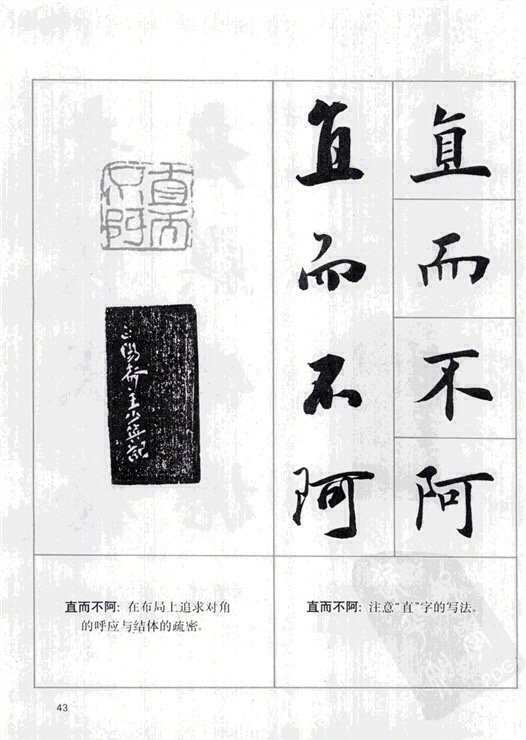 直而不阿
直而不阿
直而不阿
直而不阿:在布局上追求对角
的呼应与结体的疏密。
直而不阿:注意“直”字的写法。
43